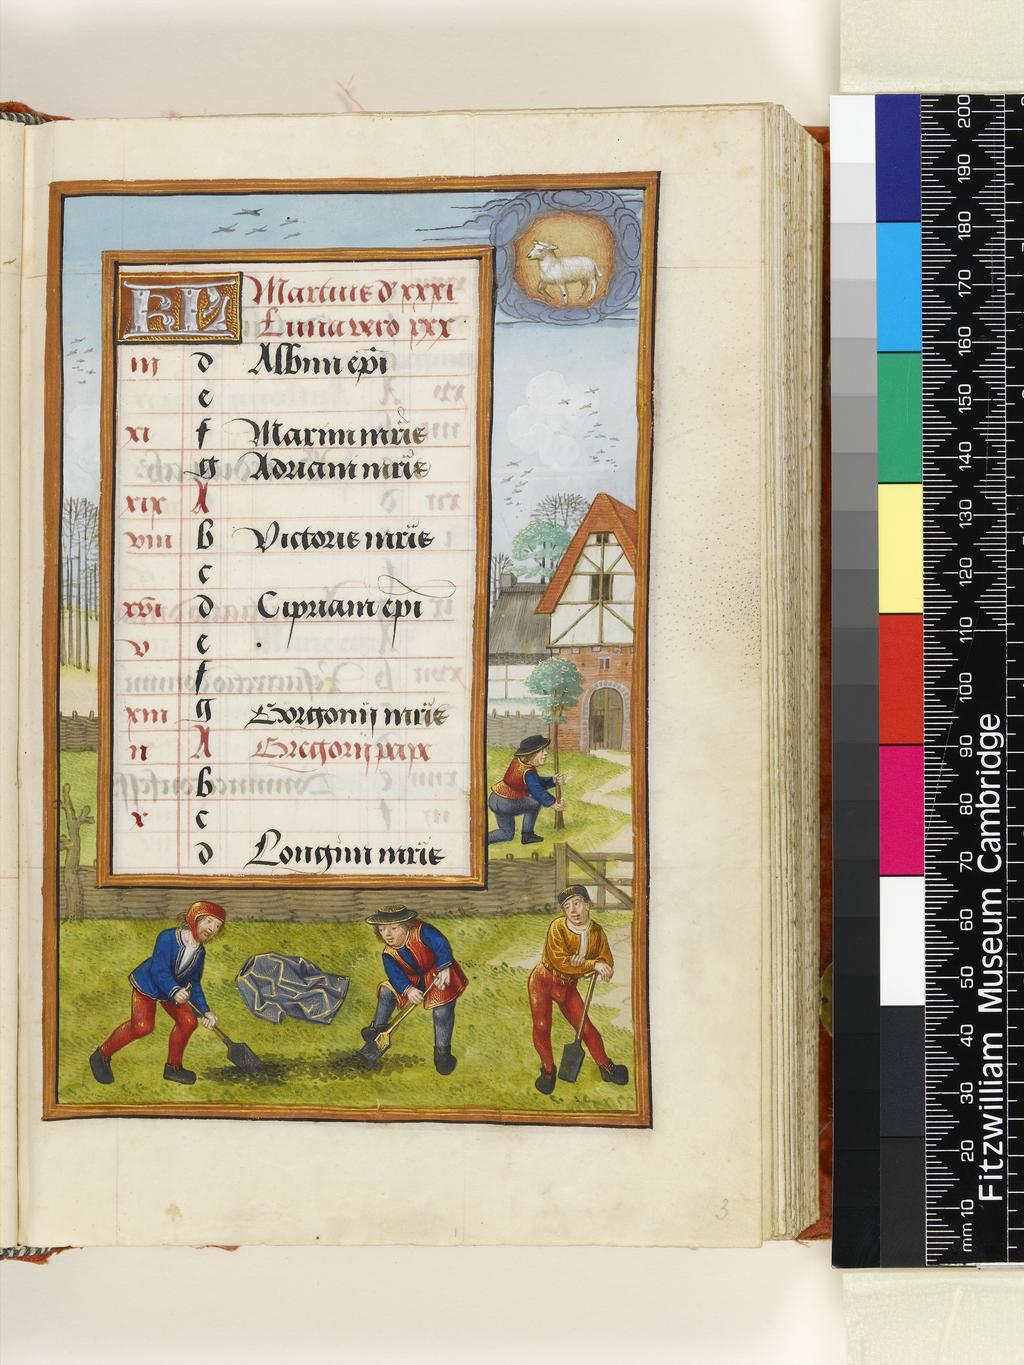 KL Martius d xxxi
Luna vero xxx
iii d Albini epi
e
xi f Marini mris
g Adriani mris
xix A
viii b Victoris mris
c
xvi d Cipriani epi
v e
f
xiii g Gorgonij mris
ii A Gregorij pape
b
x c
d Longini mris
3
Fitzwilliam Museum Cambridge
mm 10 20 30 40 50 60 70 80 90 100 110 120 130 140 150 160 170 180 190 200